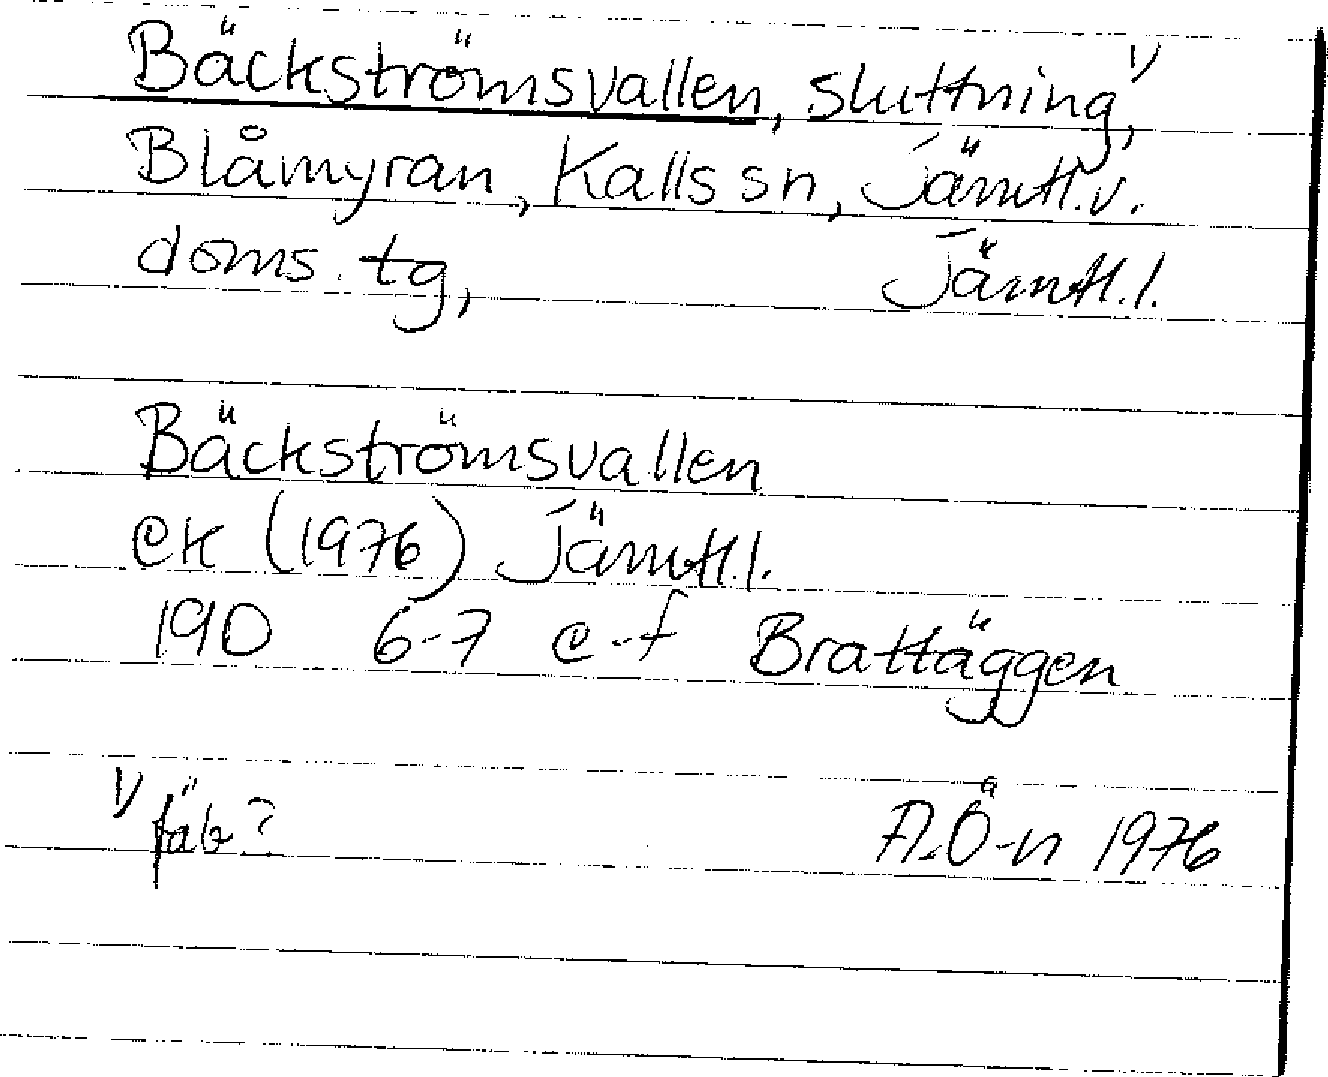 Bäckströmsvallen, sluttning, 1)
Blåmyran, Kalls sn, Jämtl.v.
doms. tg, Jämtl.l.
Bäckströmsvallen
ek (1976) Jämtl.l.
19D 6-7 e-f Brattäggen
1) fäb? A.Ö-n 1976